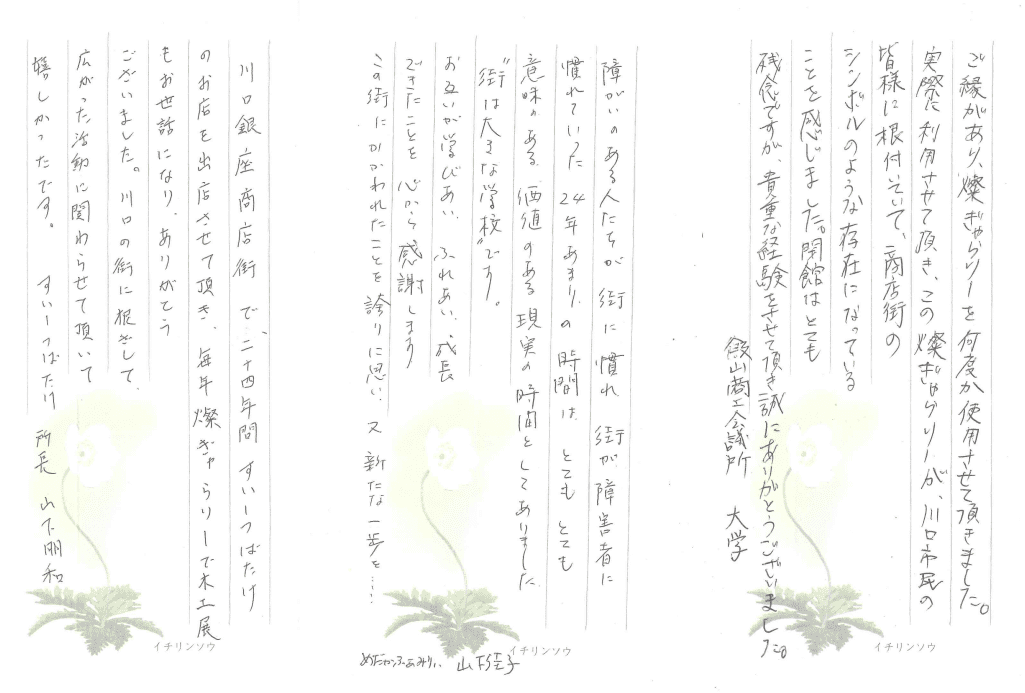 ご縁があり、燦ぎゃらりーを何度か使用させて頂きました。
実際に利用させて頂き、この燦ぎゃらりーが、川口市民の
皆様に根付いていて、商店街の
シンボルのような存在になっている
ことを感じました。閉館はとても
残念ですが、貴重な経験をさせて頂き誠にありがとうございました。
飯山商工会議所 大学
イチリンソウ
障がいのある人たちが 街に慣れ 街が障害者に
慣れていった 24年あまりの時間は とても とても
意味のある 価値のある 現実の時間としてありました
“街は大きな学校”です。
お互いが学びあい、ふれあい、成長
できたことを 心から感謝します
この街にかかわれたことを誇りに思い 又 新たな一歩を……
めだかふぁみりぃ 山下佳子
イチリンソウ
川口銀座商店街で、二十四年間 すいーつばたけ
のお店を出店させて頂き、毎年燦ぎゃらりーで木工展
もお世話になり、ありがとう
ございました。川口の街に根ざして、
広がった活動に関わらせて頂いて
嬉しかったです。 すいーつばたけ 所長 山下明和
イチリンソウ